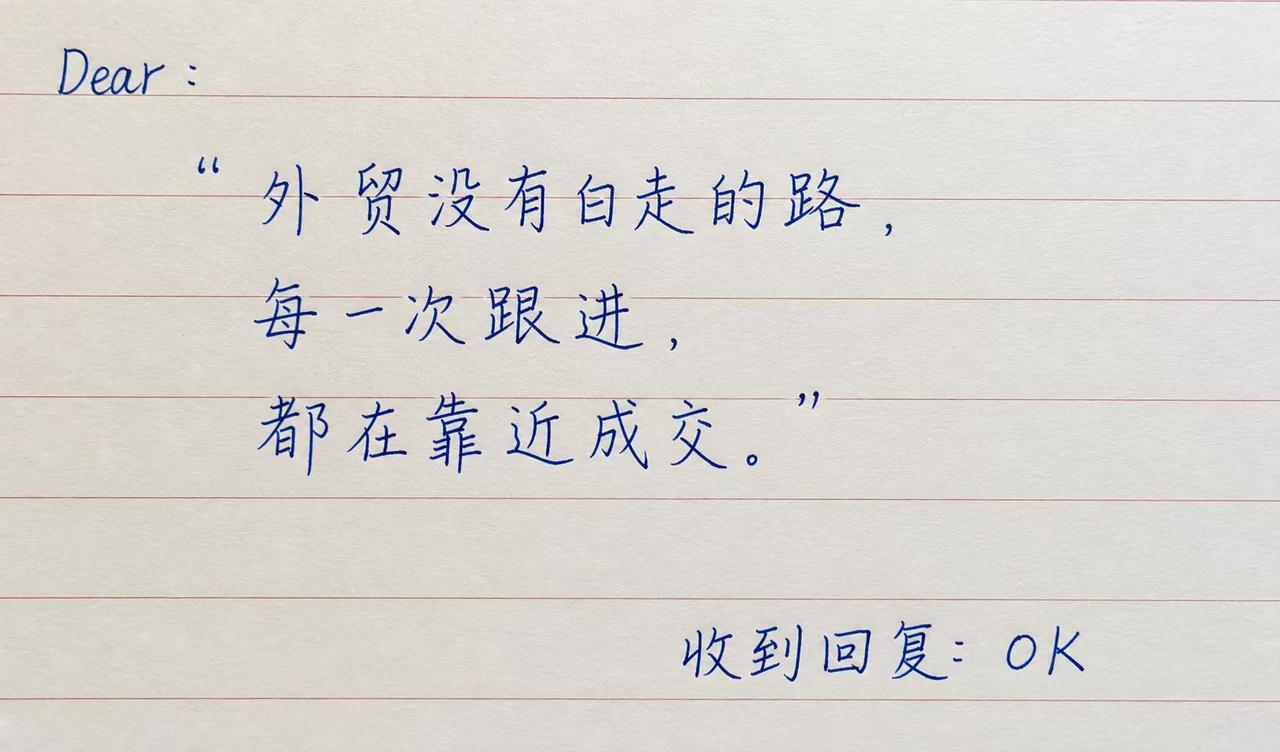 Dear：
“外贸没有白走的路，
每一次跟进，
都在靠近成交。”
收到回复：OK